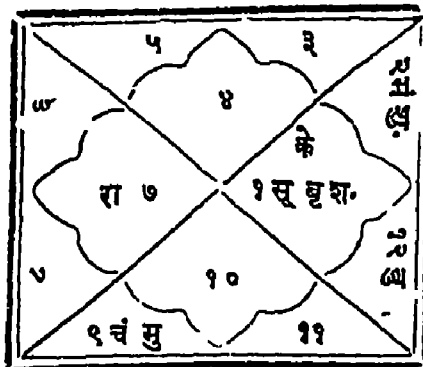 ५
३
४
२ मं
के
रा ७
१ सू बृ श.
१२
१०
९ चं मु
११